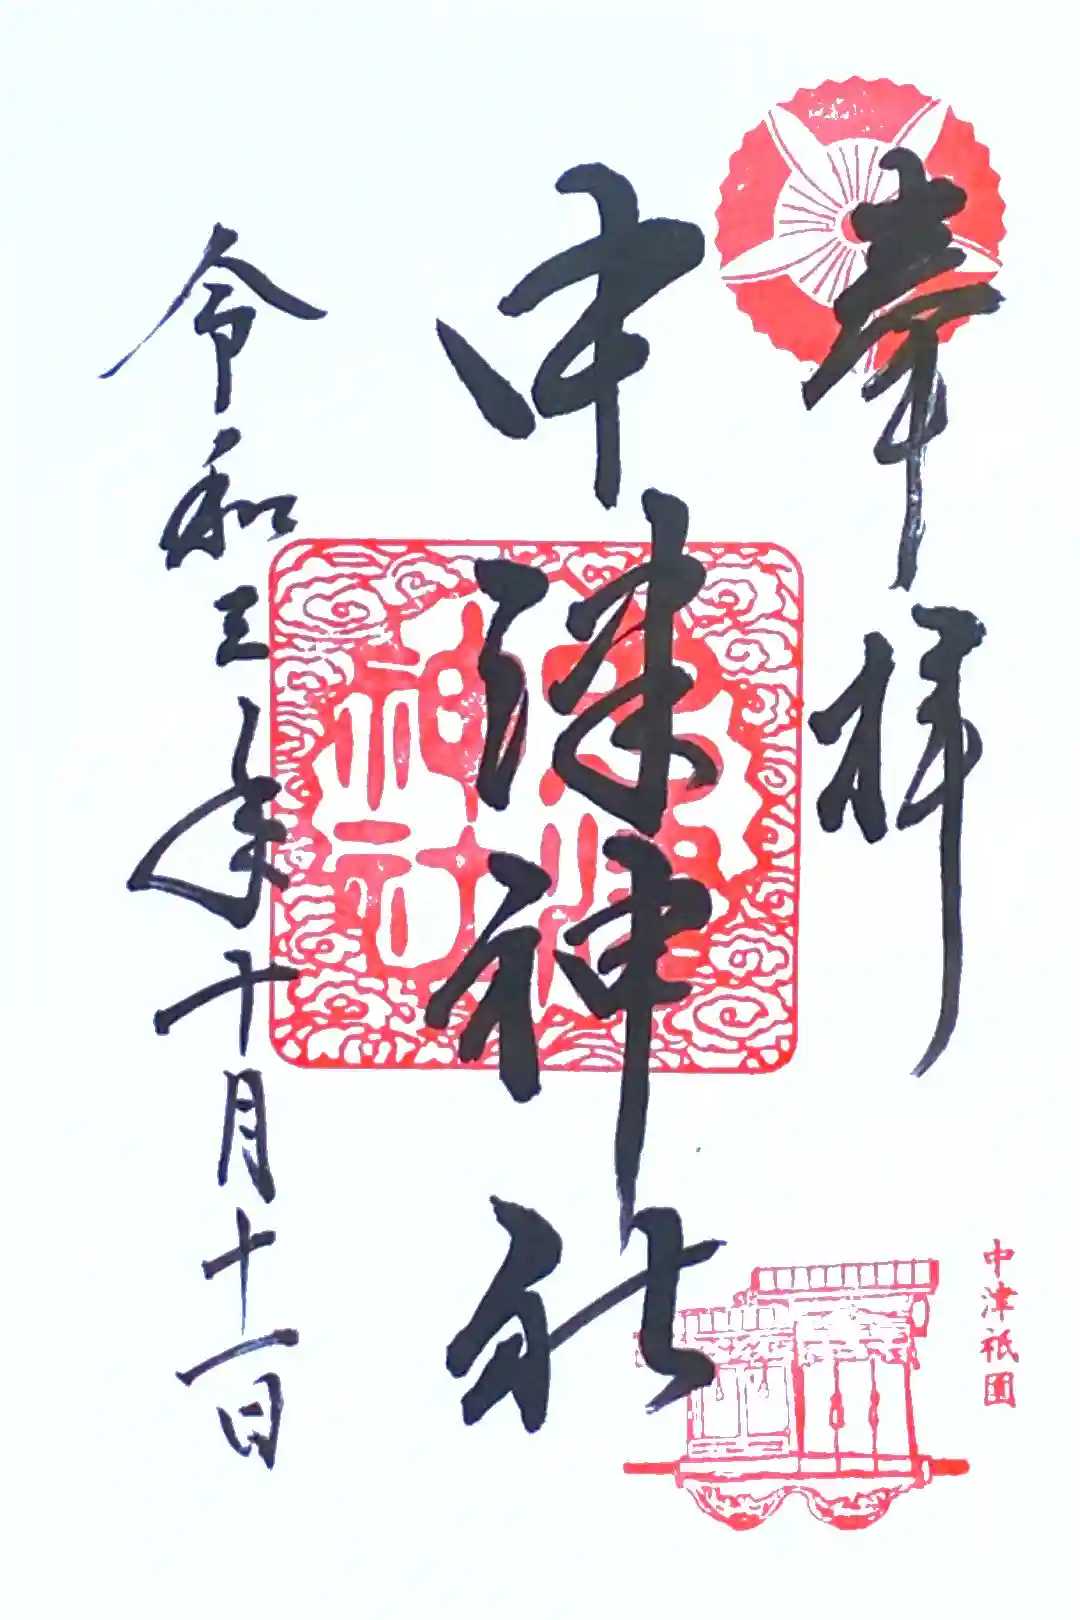 奉拝
中津祇園
中津神社
中津
神社
令和三年十月十一日